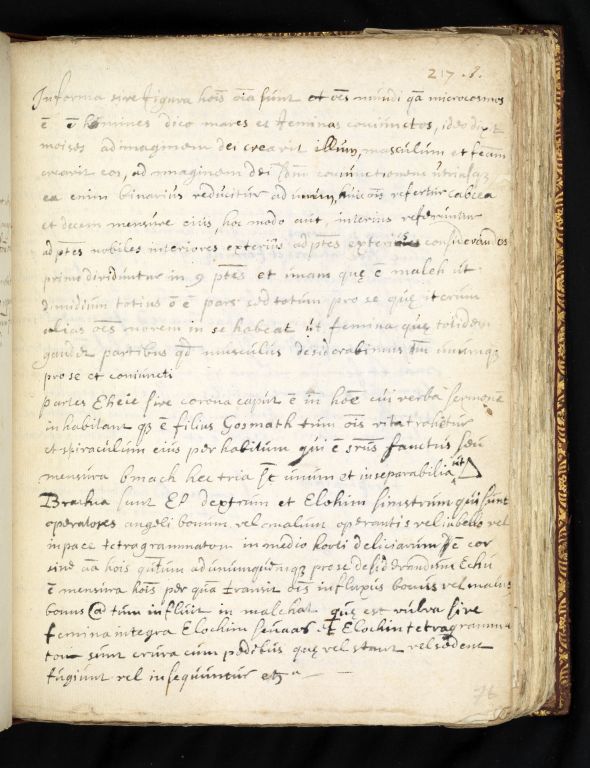 217.8.
In forma sive figura hois oia sunt et oēs mundi qa microcosmos
ē ō homines dico mares et feminas coniunctos, ideo dixit
moises ad imaginem dei creavit illum, masculum et feām
creavit eos, ad imaginem dei coniunctionem
ea enim binarius reducitur ad unum, refertur cabcea
et decem mensure eius, hoc modo aut, interius referuntur
ad ptes nobiles interiores exterius ad ptes exteriores
primo dividuntur in 9 ptes et unam quę ē maleh ut
dimidium totius ō ē pars sed totum pro se quę iterum
alias oēs novem in se habeat ut femina quę totidem
gaudet partibus qd musculus desiderabimus unumqz
pro se et coniuncti
partes Eheie sive corona caput ē in hoē cui verba sermonē
in habitant qz ē filius Gosmath tum ois vita trohetur
et spiraculum eius per habitum qui ē srus sanctus seu
mensura bmach hec tria st unum et inseparabilia ut △
Brachia sunt El dextrum et Elohim sinistrum qui sunt
operatores angeli bonum vel malum operantis vel in bello vel
in pace tetragrammaton in medio horti deliciarum ē cor
sive aā hois ad unumquemqz pro se desiderandum
ē mensura hois per quā transit ois influxus bonus vel malus
bonus tum influit in malchat quę est vulva sive
femina integra Elochim et Elochim tetragramma
ton sunt crura cum pedibus quę vel stant vel sedent
fugiunt vel insequuntur etz
76